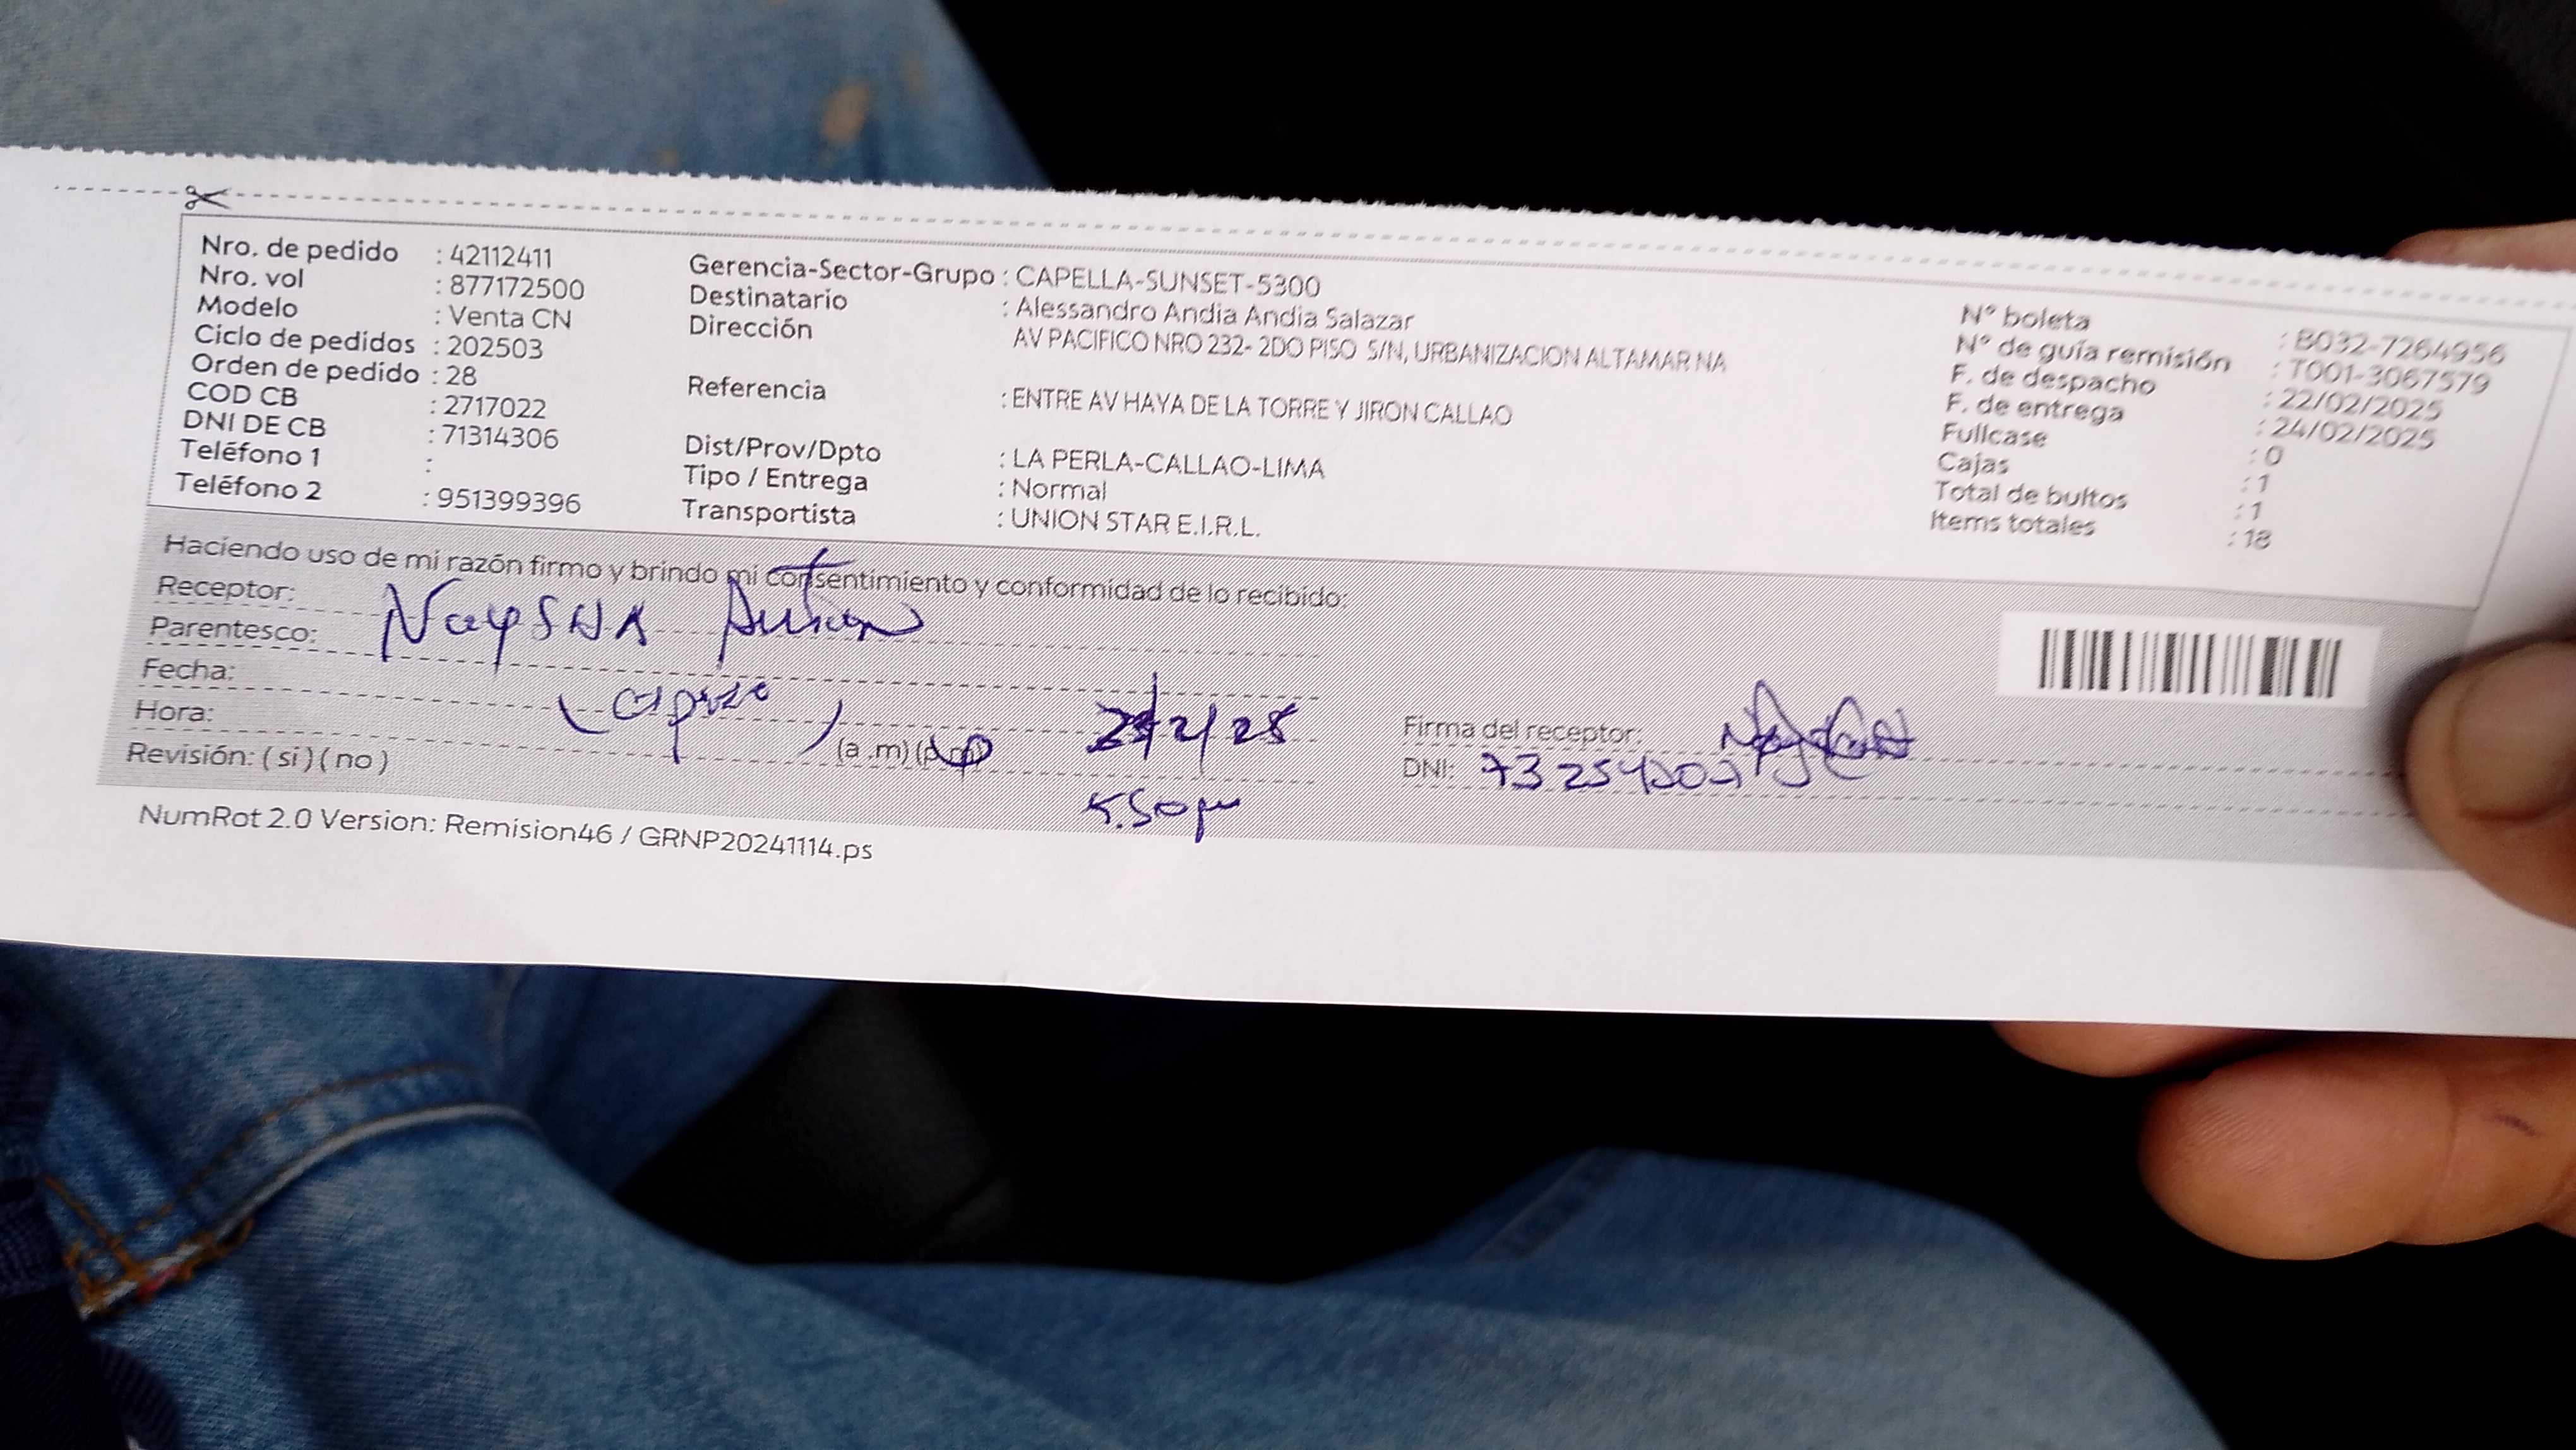 Nro. de pedido : 42112411
Nro. vol : 877172500
Modelo : Venta CN
Ciclo de pedidos : 202503
Orden de pedido : 28
COD CB : 2717022
DNI DE CB : 71314306
Teléfono 1 :
Teléfono 2 : 951399396
Gerencia-Sector-Grupo : CAPELLA-SUNSET-5300
Destinatario : Alessandro Andia Andia Salazar
Dirección AV PACIFICO NRO 232- 2DO PISO S/N, URBANIZACION ALTAMAR NA
Referencia : ENTRE AV HAYA DE LA TORRE Y JIRON CALLAO
Dist/Prov/Dpto : LA PERLA-CALLAO-LIMA
Tipo / Entrega : Normal
Transportista : UNION STAR E.I.R.L.
N° boleta : B032-7264956
N° de guía remisión : T001-3067579
F. de despacho : 22/02/2025
F. de entrega : 24/02/2025
Fullcase : 0
Cajas : 1
Total de bultos : 1
Items totales : 18
Haciendo uso de mi razón firmo y brindo mi consentimiento y conformidad de lo recibido:
Receptor:
Parentesco:
Fecha:
Hora: (a .m) (p.m)
Revisión: ( si ) ( no )
5.50pm
Firma del receptor:
DNI:
NumRot 2.0 Version: Remision46 / GRNP20241114.ps